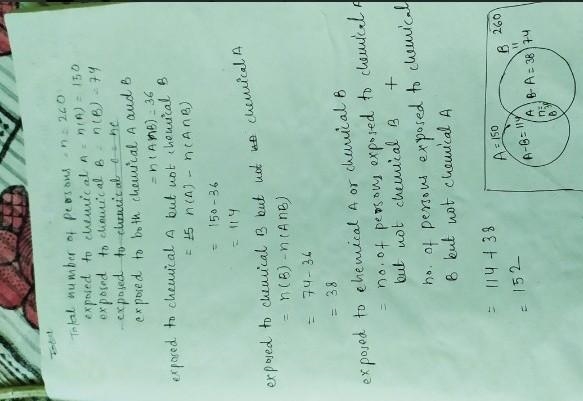 Total number of persons = n = 260
exposed to chemical A = n(A) = 150
exposed to chemical B = n(B) = 74
exposed to both chemical A and B
= n(A∩B) = 36
exposed to chemical A but not chemical B
= n(A) - n(A∩B)
= 150-36
= 114
exposed to chemical B but not chemical A
= n(B) - n(A∩B)
= 74-36
= 38
exposed to chemical A or chemical B
= no. of persons exposed to chemical A
but not chemical B +
no. of persons exposed to chemical
B but not chemical A
= 114 + 38
= 152
260
A = 150
B = 74
A-B = 114
B-A = 38